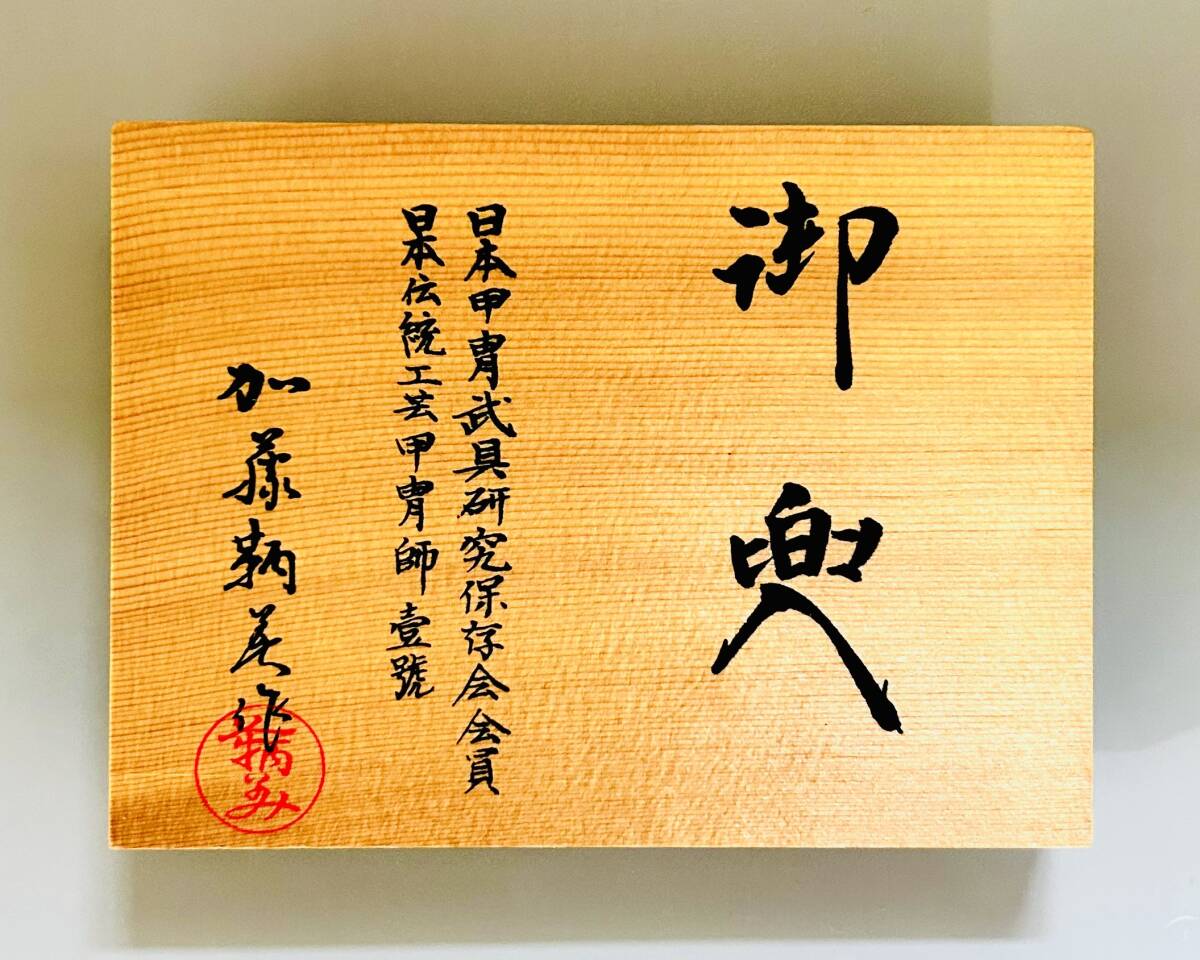 御兜
日本甲冑武具研究保存会会員
日本伝統工芸甲冑師壹號
加藤鞆美作
鞆美